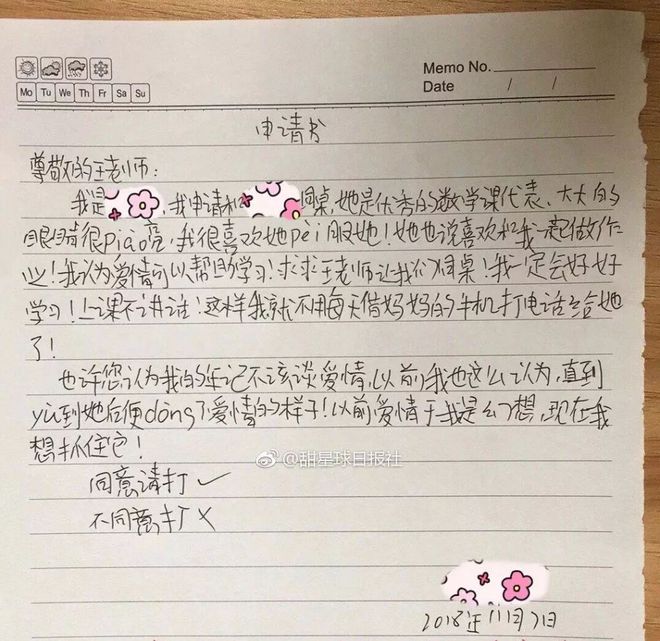 Memo No.
Mo Tu We Th Fr Sa Su
Date / /
申请书
尊敬的王老师:
我是 ,我申请和 同桌,她是优秀的数学课代表、大大的
眼睛很piào亮!我很喜欢她pèi服她!她也说喜欢和我一起做作
业!我认为爱情可以帮助学习!求求王老师让我们同桌!我一定会好好
学习!上课不讲话!这样我就不用每天借妈妈的手机打电话给她
了!
也许您认为我的年记不该谈爱情,以前我也这么认为,直到
yù到她后便dǒng了爱情的样子!以前爱情于我是幻想,现在我
想抓住它!
@甜星球日报社
同意请打✓
不同意打×
2018年11月7日